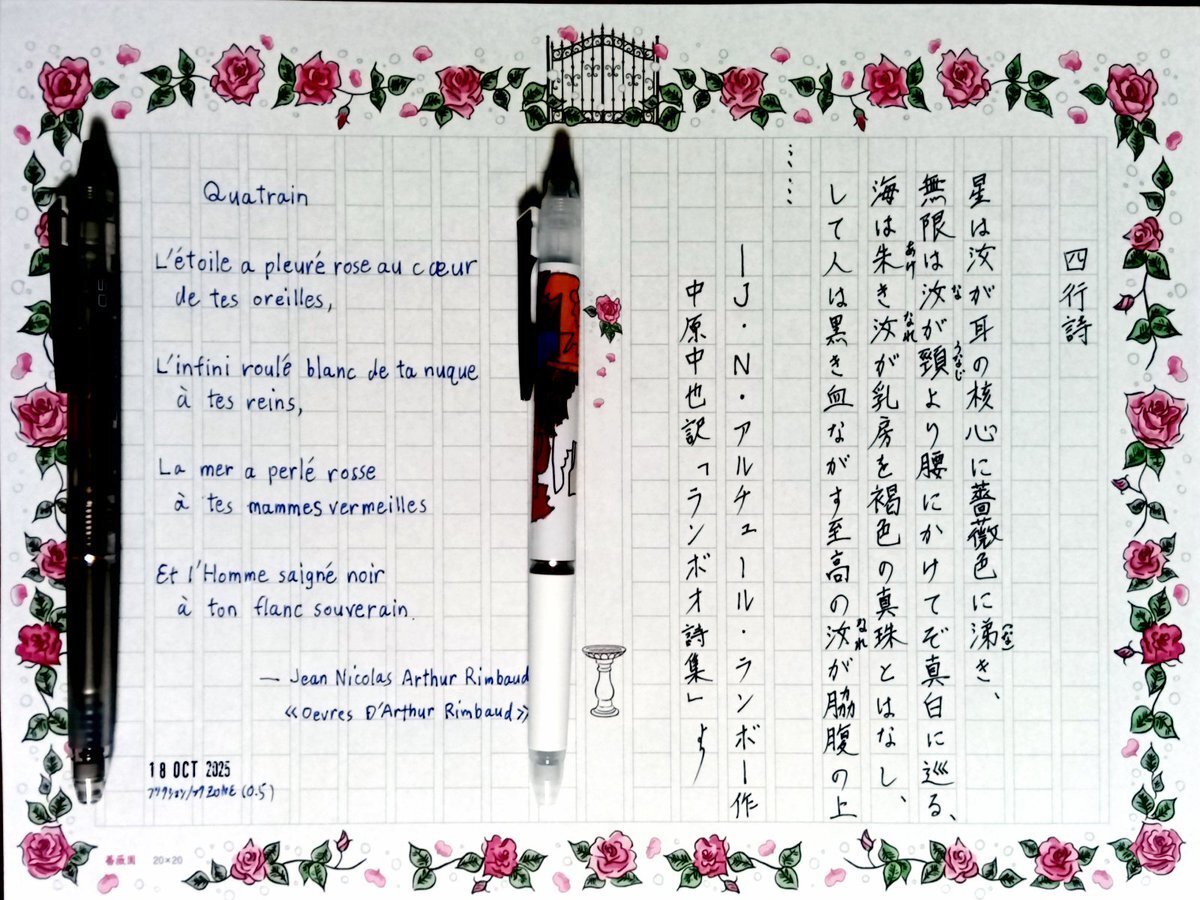 Quatrain
L'étoile a pleuré rose au cœur
de tes oreilles,
L'infini roulé blanc de ta nuque
à tes reins,
La mer a perlé rosse
à tes mammes vermeilles
Et l'Homme saigné noir
à ton flanc souverain.
— Jean Nicolas Arthur Rimbaud
≪Oevres D'Arthur Rimbaud≫
18 OCT 2025
ZONE (0.5)
四行詩
星は汝が耳の核心に薔薇色に涕き、
な うなじ
無限は汝が頸より腰にかけてぞ真白に巡る、
あけ なれ
海は朱き汝が乳房を褐色の真珠とはなし、
なれ
して人は黒き血ながす至高の汝が脇腹の上
……
―J・N・アルチュール・ランボー作
中原中也訳「ランボオ詩集」より
薔薇園 20×20